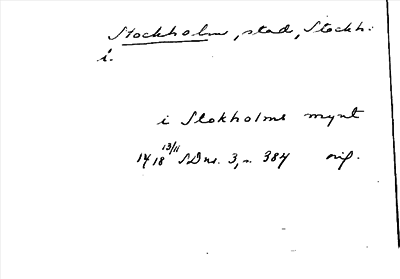 Stockholm, stad, Stockh:
i.
i Stokholms mynt
1418 13/11 SDns. 3, n. 384 orig.